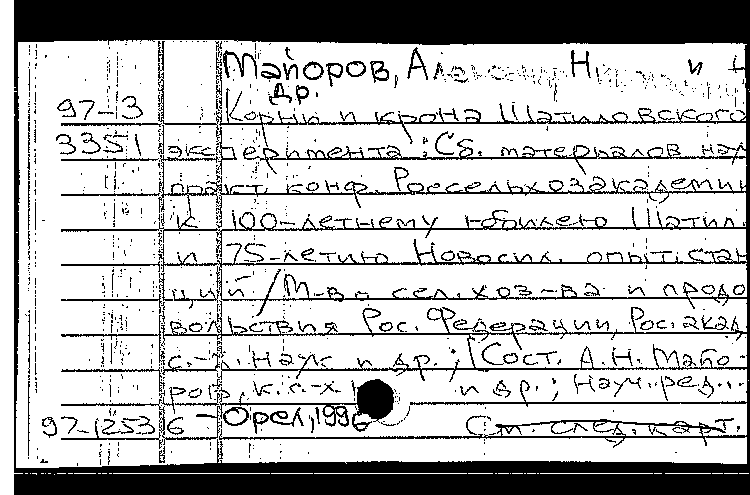 Майоров, Александр Н и
др.
97-3 Корни и крона Шатиловского
3351 эксперимента: Сб. материалов науч
практ. конф. Россельхозакадемии
к 100-летнему юбилею Шатил.
и 75-летию Новосил. опыт. стан
ций / М-во сел. хоз-ва и продо
вольствия Рос. Федерации, Рос. акад.
с.-х. наук и др.; [Сост. А.Н. Майо-
ров, к.с.-х и др.; Науч. ред...
97-12536 - Орел, 1996 См. след. карт.